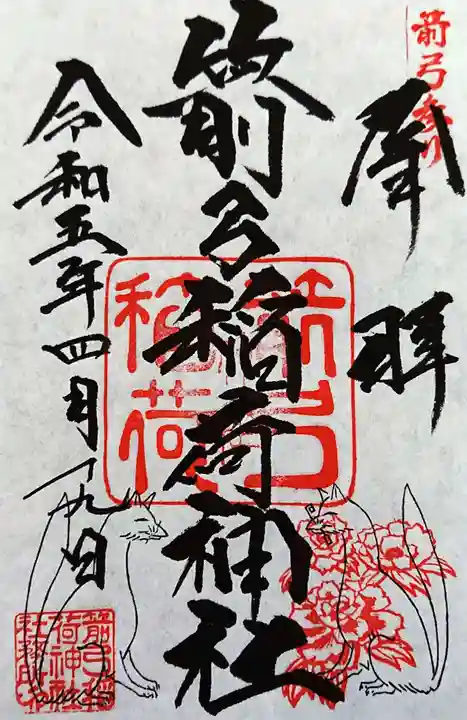 箭弓参り
奉拝
箭弓稲荷神社
箭弓稲荷
令和五年四月十九日
箭弓稲荷神社社務所